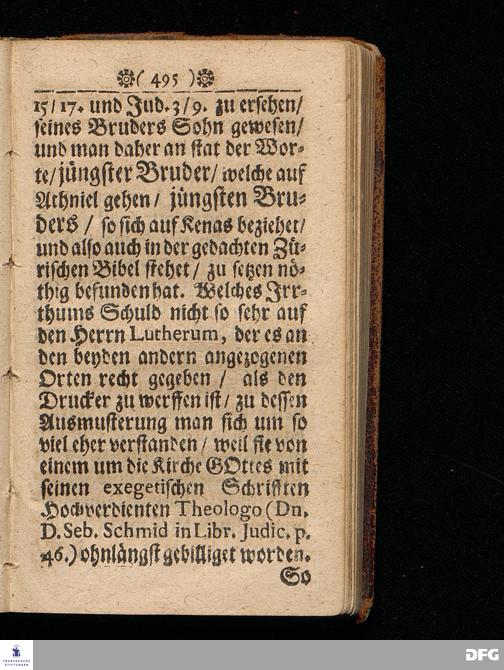 ❁( 495 )❁
15/17. und Jud. 3/9. zu ersehen/
seines Bruders Sohn gewesen/
und man daher an stat der Wor-
te/ jüngster Bruder/ welche auf
Athniel gehen/ jüngsten Bru-
ders/ so sich auf Kenas beziehet/
und also auch in der gedachten Zü-
rischen Bibel stehet/ zu setzen nö-
thig befunden hat. Welches Irr-
thums Schuld nicht so sehr auf
den Herrn Lutherum, der es an
den beyden andern angezogenen
Orten recht gegeben/ als den
Drucker zu werffen ist/ zu dessen
Ausmusterung man sich um so
viel eher verstanden/ weil sie von
einem um die Kirche GOttes mit
seinen exegetischen Schrifften
Hochverdienten Theologo (Dn.
D. Seb. Schmid in Libr. Judic. p.
46.) ohnlängst gebilliget worden.
So
FRANCKESCHE
STIFTUNGEN
DFG